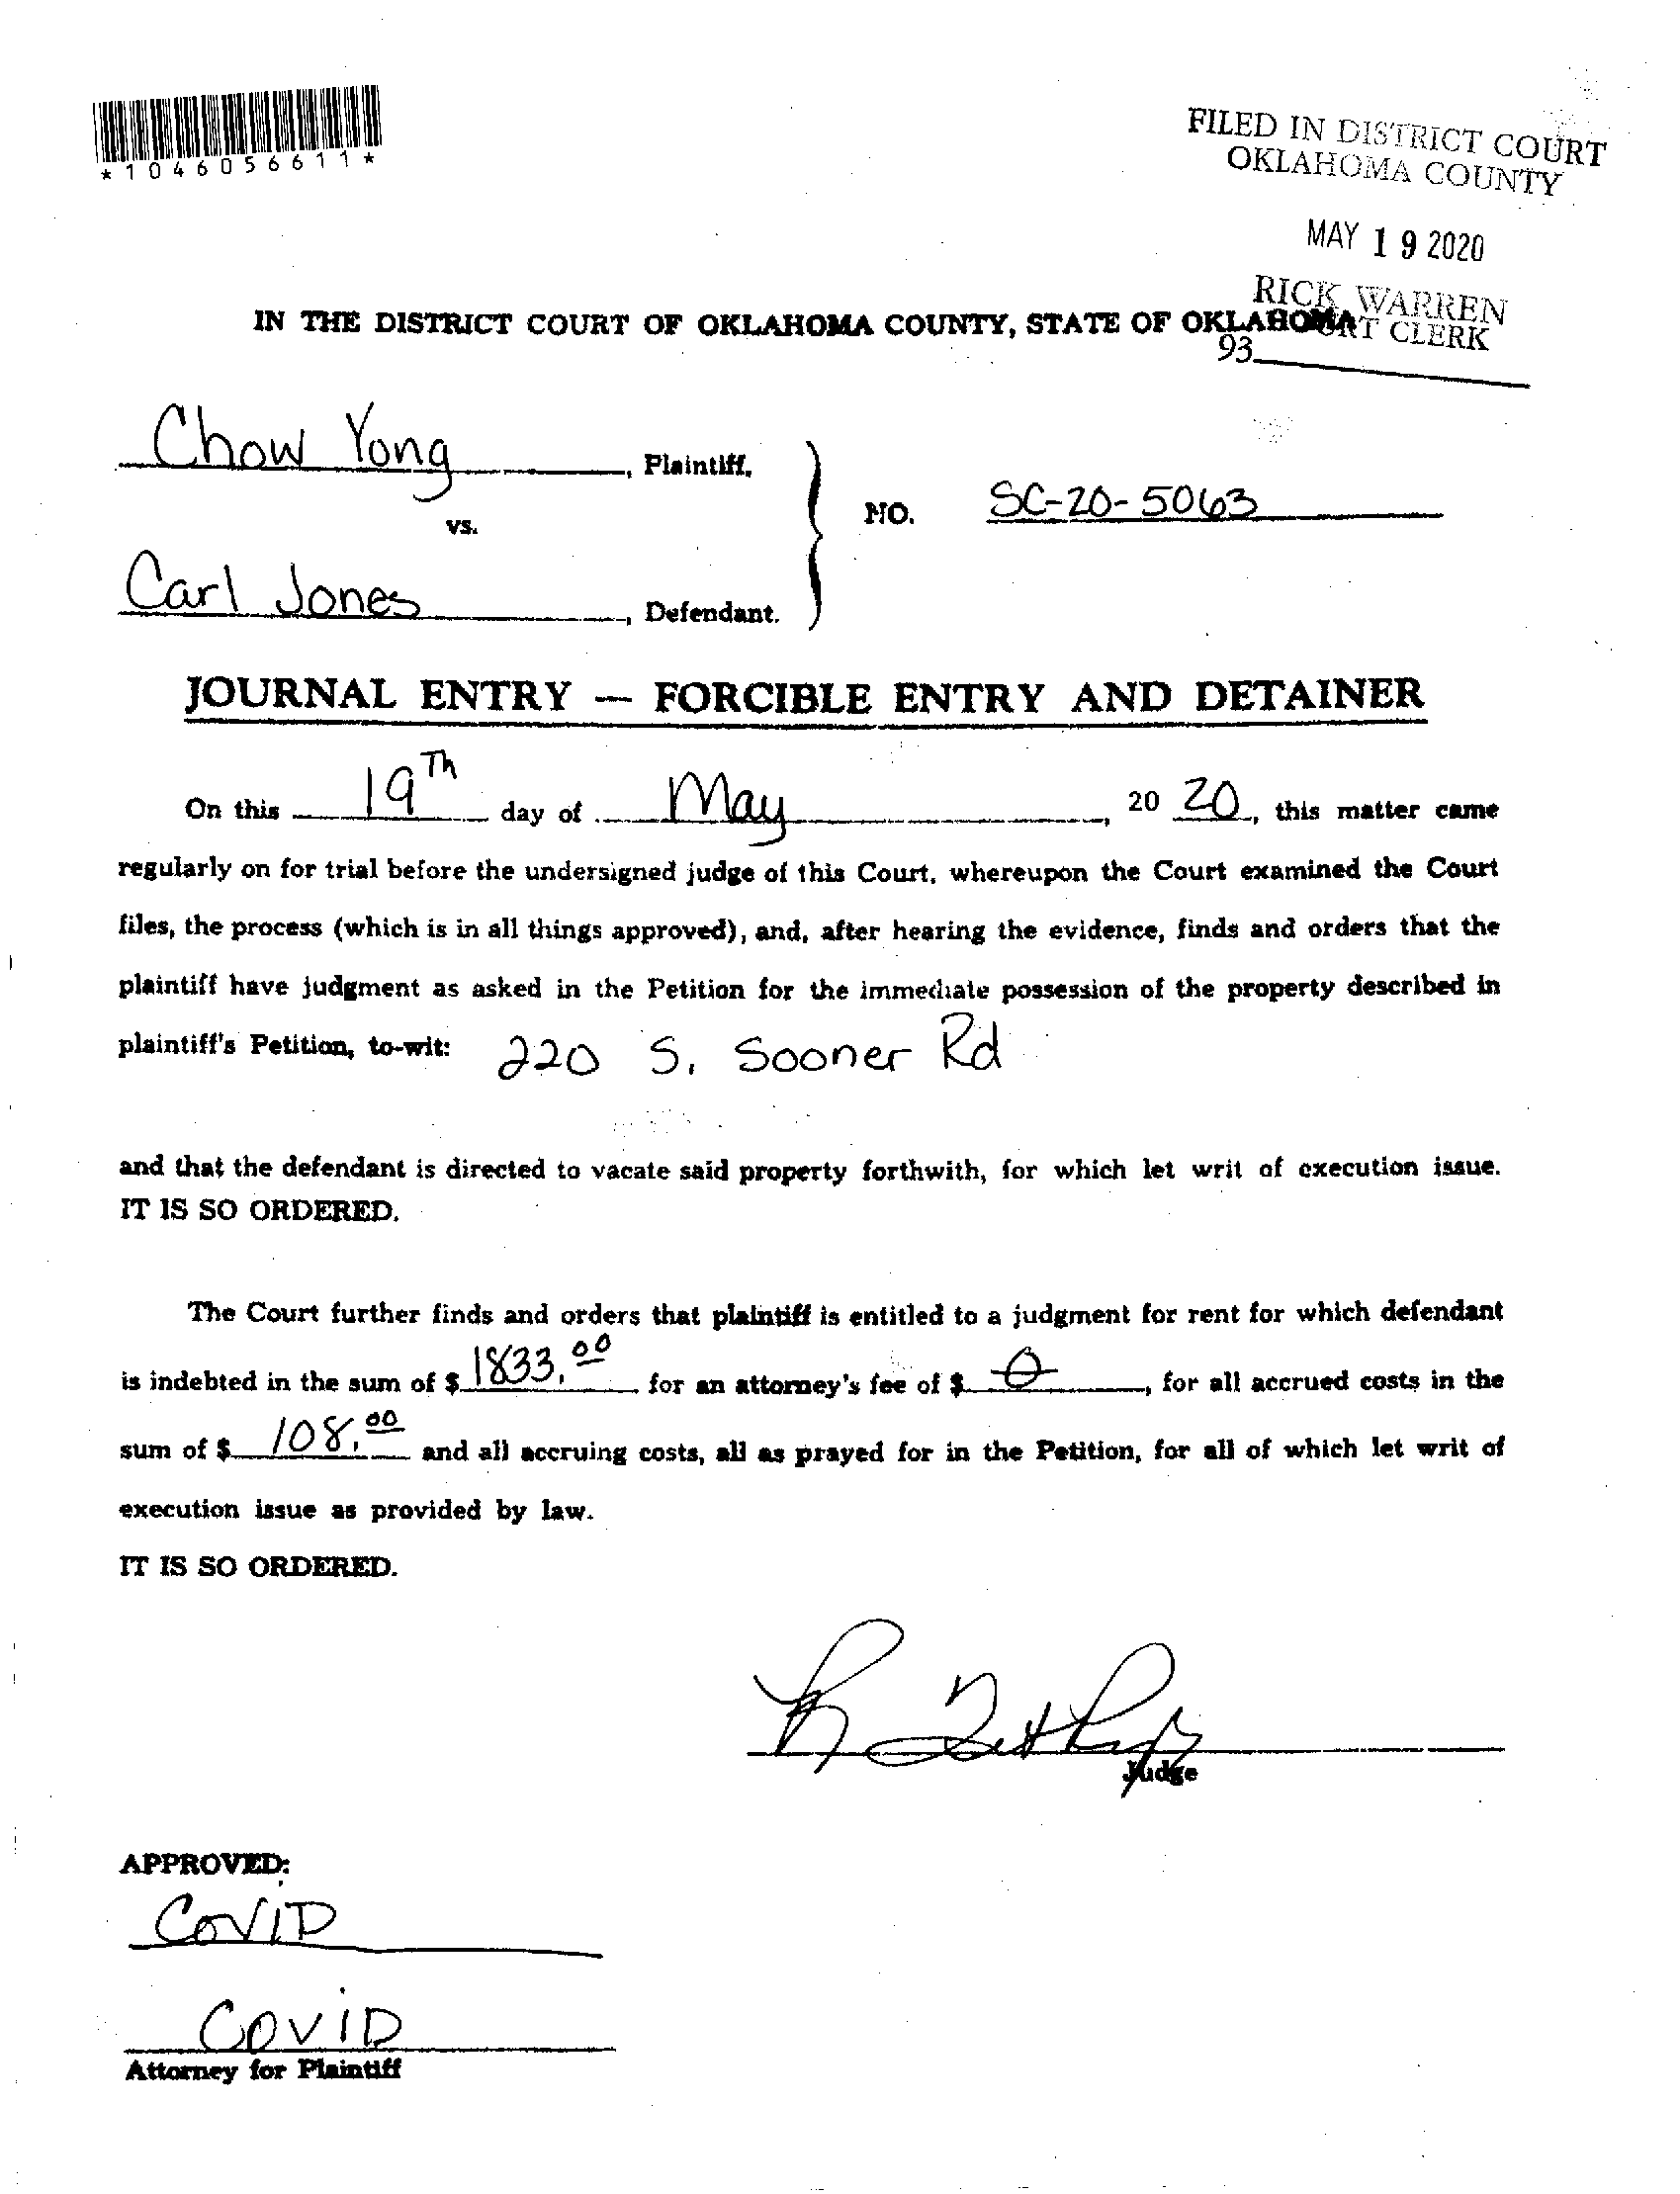 *1046056611*
FILED IN DISTRICT COURT
OKLAHOMA COUNTY
MAY 19 2020
RICK WARREN
CLERK
IN THE DISTRICT COURT OF OKLAHOMA COUNTY, STATE OF OKLAHOMA
93
Chow Yong, Plaintiff,
vs.
NO. SC-20-5063
Carl Jones, Defendant.
JOURNAL ENTRY — FORCIBLE ENTRY AND DETAINER
On this 19Th day of May, 20 20, this matter came
regularly on for trial before the undersigned judge of this Court, whereupon the Court examined the Court
files, the process (which is in all things approved), and, after hearing the evidence, finds and orders that the
plaintiff have judgment as asked in the Petition for the immediate possession of the property described in
plaintiff's Petition, to-wit: 220 S. Sooner Rd
and that the defendant is directed to vacate said property forthwith, for which let writ of execution issue.
IT IS SO ORDERED.
The Court further finds and orders that plaintiff is entitled to a judgment for rent for which defendant
is indebted in the sum of $ 1833.00 for an attorney's fee of $ 0, for all accrued costs in the
sum of $ 108.00 and all accruing costs, all as prayed for in the Petition, for all of which let writ of
execution issue as provided by law.
IT IS SO ORDERED.
Judge
APPROVED:
COVID
COVID
Attorney for Plaintiff